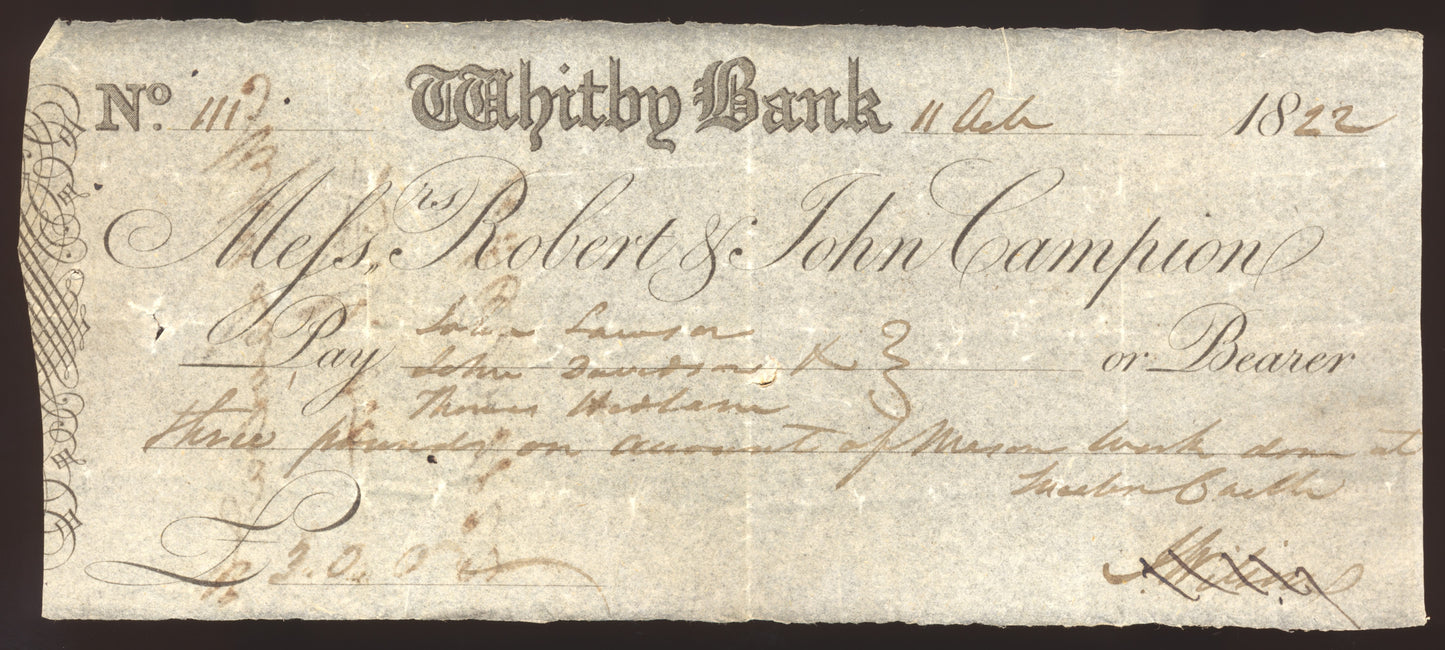 No. 111 Whitby Bank 11 Oct 1822
Messrs Robert & John Campion
Pay John Lawson
John Davidson & or Bearer
Thomas
three pounds on account of Mason Work done at
Castle
£ 3.0.0